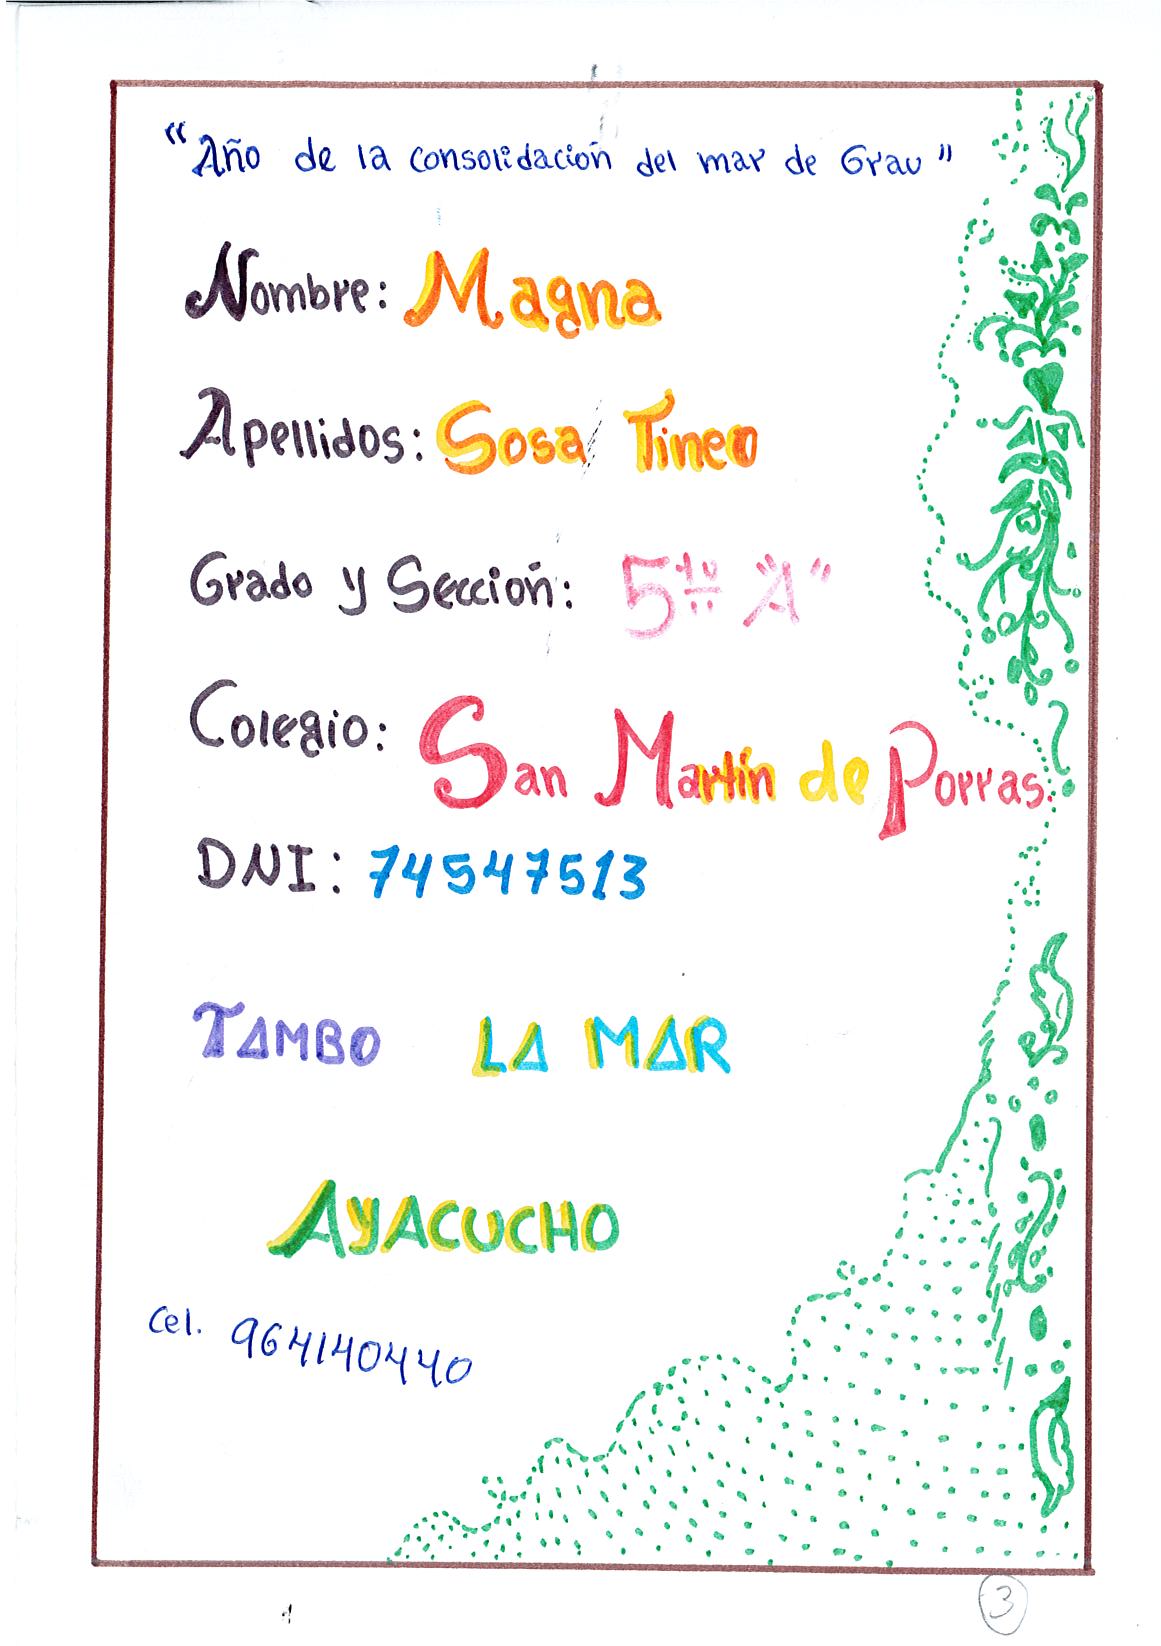 "Año de la consolidación del mar de Grau"
Nombre: Magna
Apellidos: Sosa Tineo
Grado y Sección: 5to "A"
Colegio: San Martín de Porras.
DNI: 74547513
TAMBO LA MAR
AYACUCHO
Cel. 964140440
3